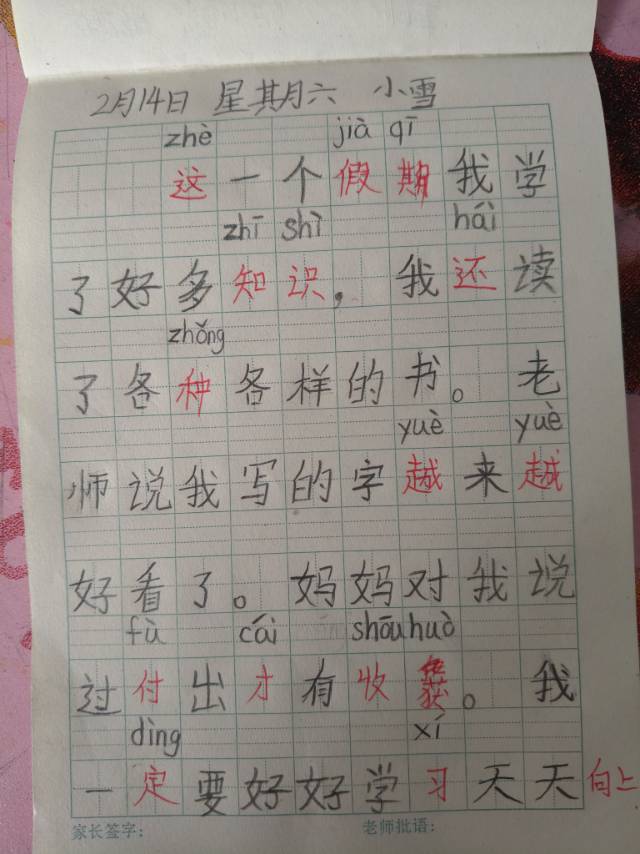 2月14日 星期六 小雪
zhè jià qī
这一个假期我学
zhī shì hái
了好多知识，我还读
zhǒng
了各种各样的书。老
yuè yuè
师说我写的字越来越
好看了。妈妈对我说
fù cái shōu huò
过付出才有收获。我
dìng xí
一定要好好学习天天向上
家长签字： 老师批语：